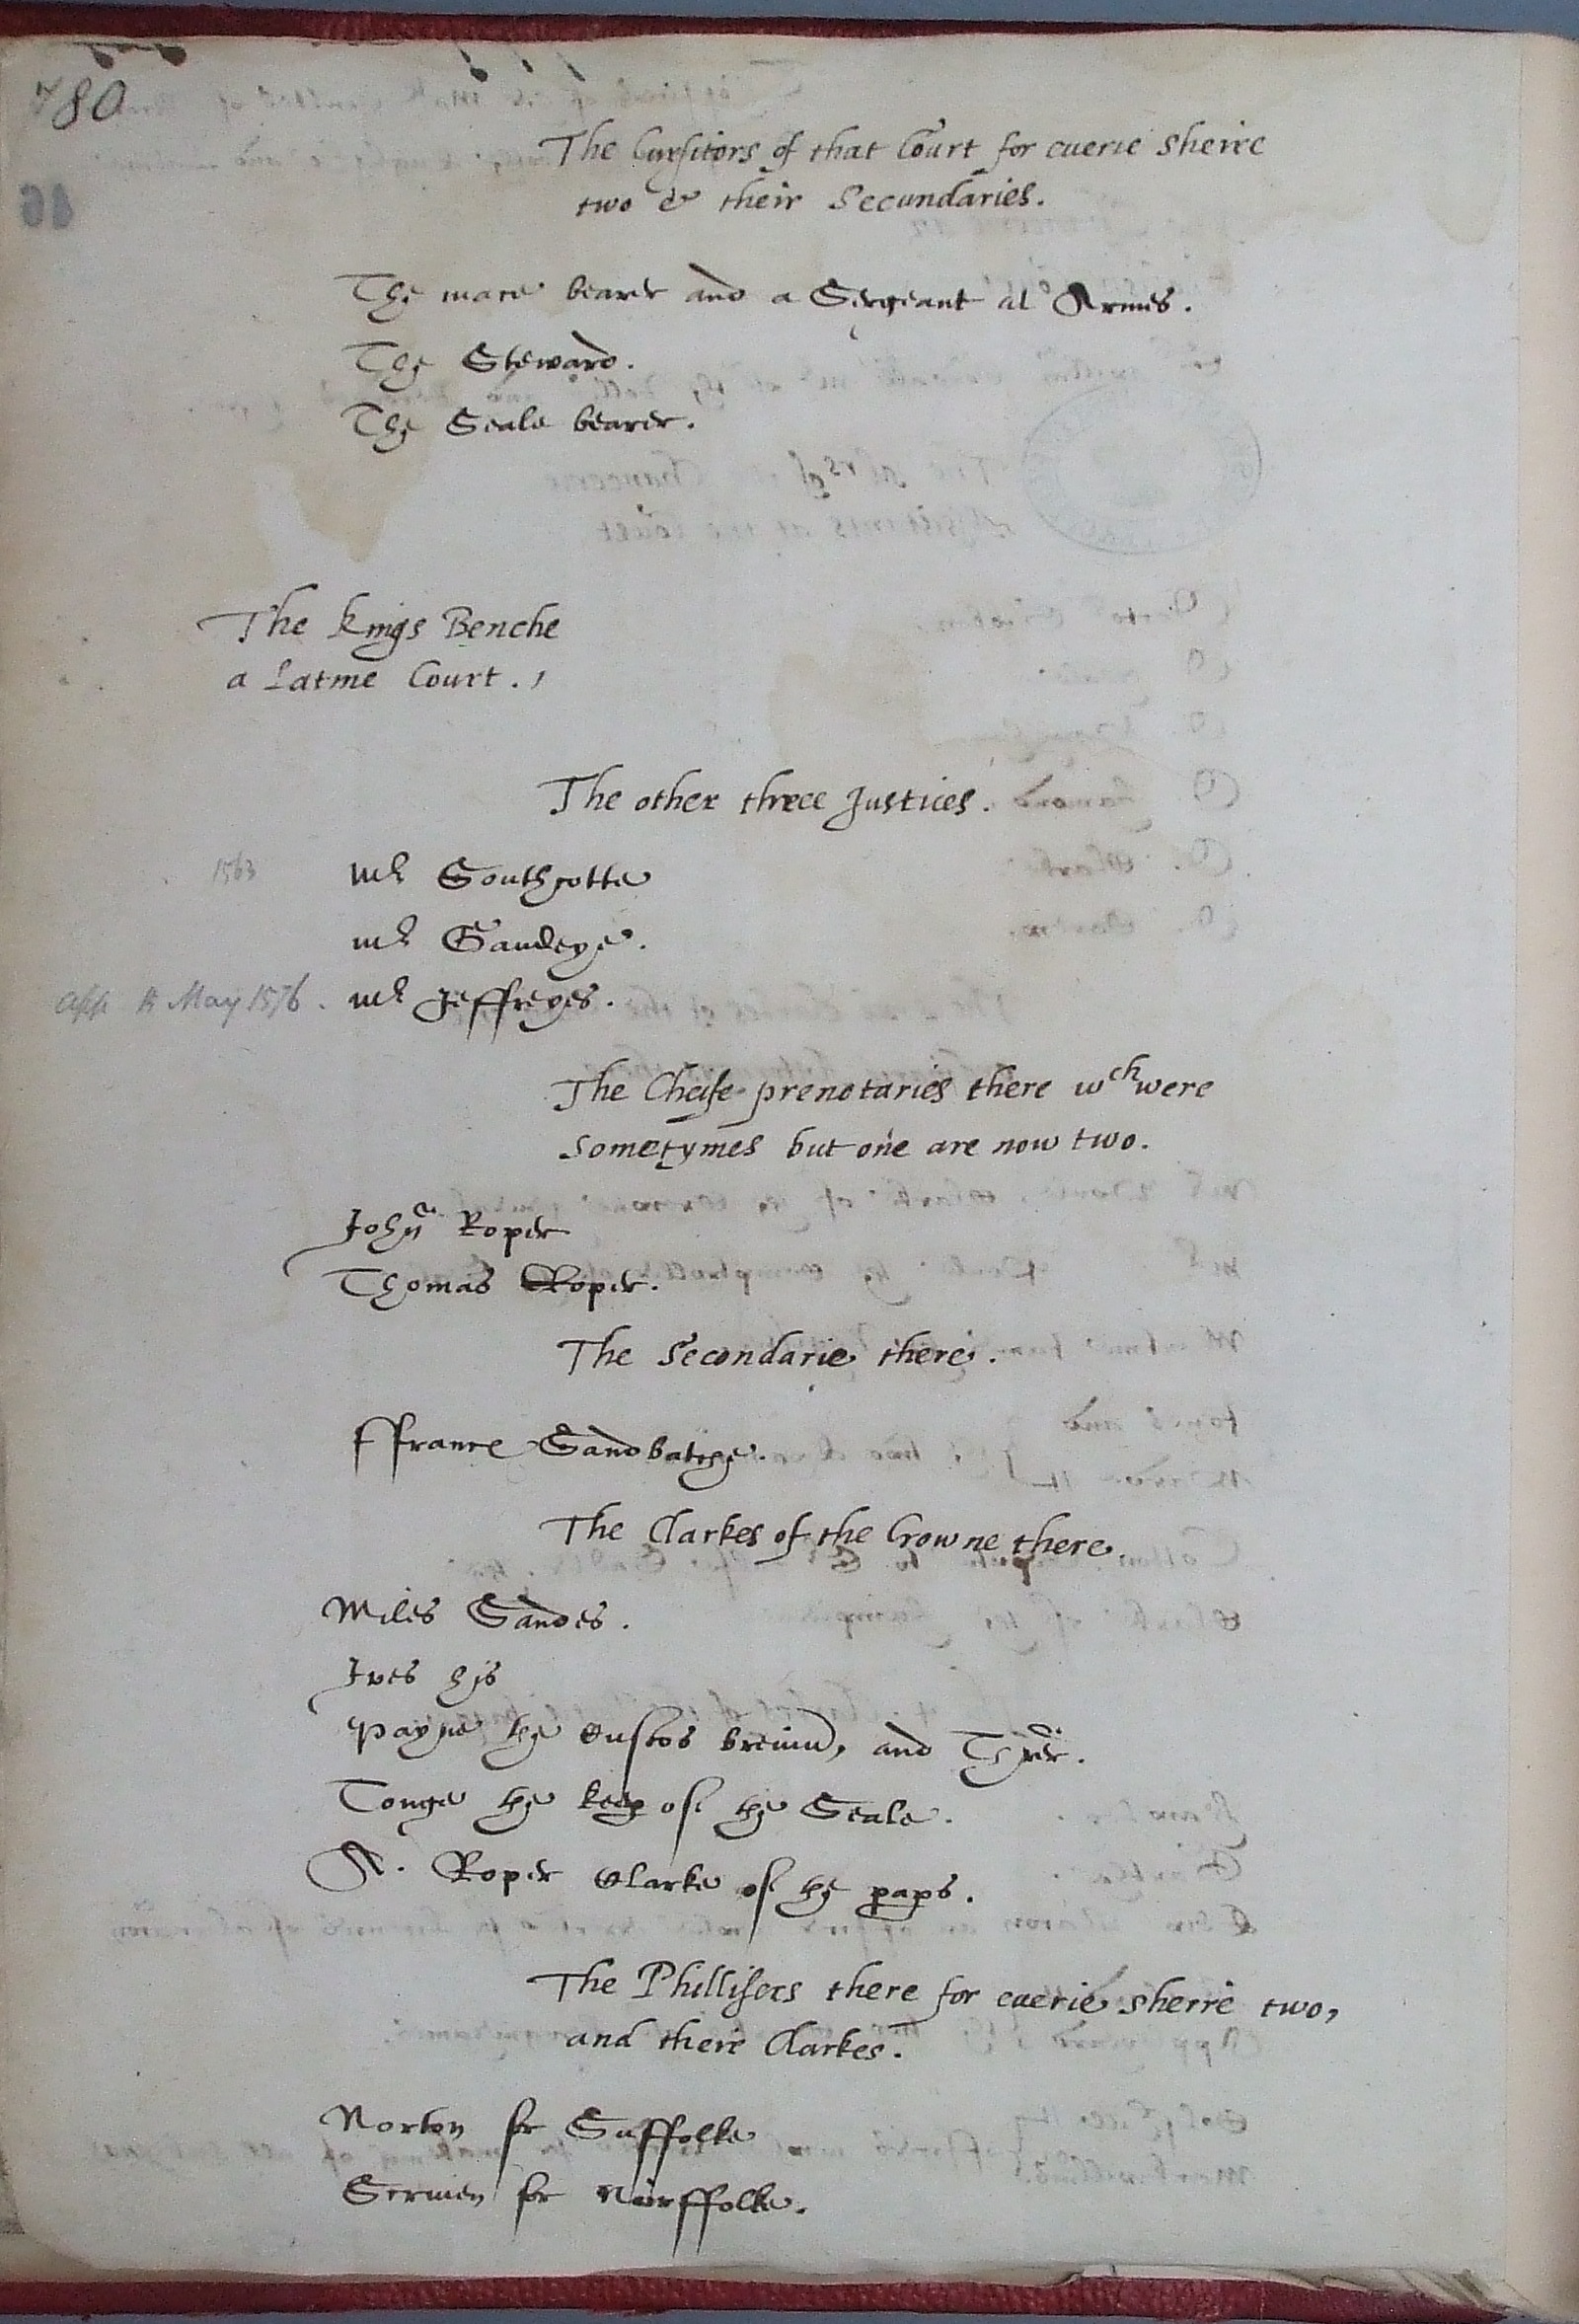 780
The Cursitors of that Court for euerie sheire
two & their Secundaries.
The mace bearer and a Sergeant at Armes.
The Steward.
The Seale bearer.
The kings Benche
a Latine Court.,
The other three Justices.
1563 Mr Southcotte
Mr Gaudeye.
app May 1576. Mr Jeffreyes.
The Cheife prenotaries there wch were
Sometymes but one are now two.
John Roper
Thomas Roper.
The Secondarie there.
ffrance Sandbatche.
The Clarkes of the Crowne there.
Miles Sandes.
Ives his
Payne the Custos breuiu, and
Tonge the keep of the Seale.
A. Roper Clarke of the paps.
The Phillisers there for euerie sherre two,
and their Clarkes.
Norton for Suffolke
Sermen for Norffolke.